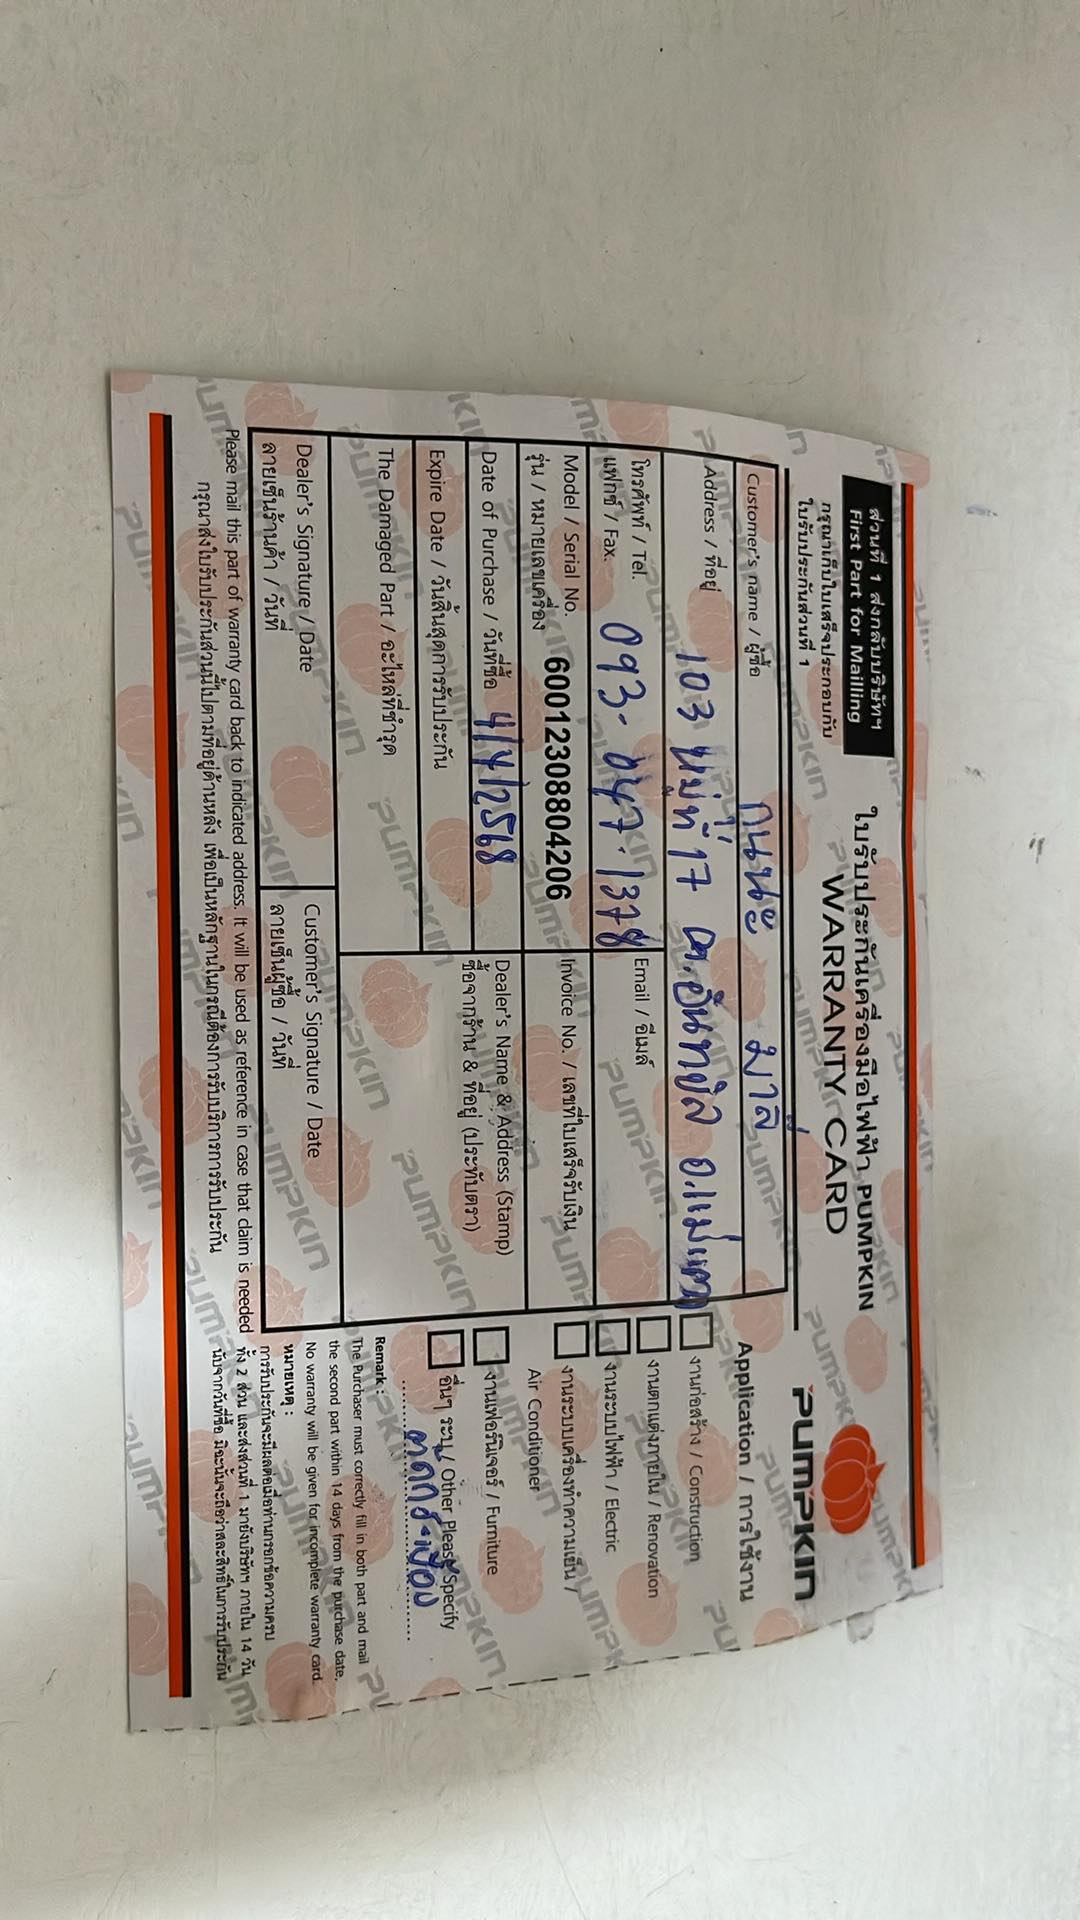 ส่วนที่ 1 ส่งกลับบริษัทฯ
First Part for Mailling
กรุณาเก็บใบเสร็จประกอบกับ
ใบรับประกันส่วนที่ 1
ใบรับประกันเครื่องมือไฟฟ้า PUMPKIN
WARRANTY CARD
PUMPKIN
Customer's name / ผู้ซื้อ มาลี
Address / ที่อยู่ 103 หมู่ที่ 17 ต.อินทขิล อ.แม่แตง
โทรศัพท์ / Tel.
แฟกซ์ / Fax. 093-047-1378
Email / อีเมล์
Model / Serial No.
รุ่น / หมายเลขเครื่อง 60012308804206
Invoice No. / เลขที่ใบเสร็จรับเงิน
Date of Purchase / วันที่ซื้อ 4/4/2568
Dealer's Name & Address (Stamp)
ซื้อจากร้าน & ที่อยู่ (ประทับตรา)
Expire Date / วันสิ้นสุดการรับประกัน
The Damaged Part / อะไหล่ที่ชำรุด
Dealer's Signature / Date
ลายเซ็นร้านค้า / วันที่
Customer's Signature / Date
ลายเซ็นผู้ซื้อ / วันที่
Please mail this part of warranty card back to indicated address. It will be used as reference in case that claim is needed
กรุณาส่งใบรับประกันส่วนนี้ไปตามที่อยู่ด้านหลัง เพื่อเป็นหลักฐานในกรณีต้องการรับบริการการรับประกัน
Application / การใช้งาน
งานก่อสร้าง / Construction
งานตกแต่งภายใน / Renovation
งานระบบไฟฟ้า / Electric
งานระบบเครื่องทำความเย็น /
Air Conditioner
งานเฟอร์นิเจอร์ / Furniture
อื่นๆ ระบุ / Other Please Specify
ตัดกระเบื้อง
Remark :
The Purchaser must correctly fill in both part and mail
the second part within 14 days from the purchase date.
No warranty will be given for incomplete warranty card.
หมายเหตุ :
การรับประกันจะมีผลต่อเมื่อท่านกรอกข้อความครบ
ทั้ง 2 ส่วน และส่งส่วนที่ 1 มายังบริษัทฯ ภายใน 14 วัน
นับจากวันที่ซื้อ มิฉะนั้นจะถือว่าสละสิทธิ์ในการรับประกัน